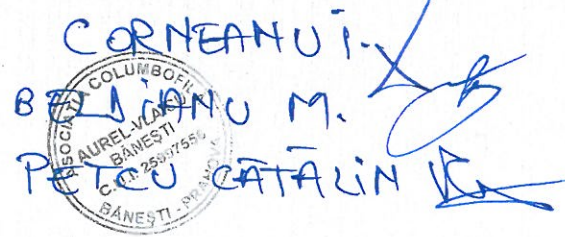 CORNEANU I.
BELDIANU M.
PETCU CĂTĂLIN
ASOCIAȚIA COLUMBOFILĂ
AUREL-VLAICU
BĂNEȘTI
BĂNEȘTI - PRAHOVA